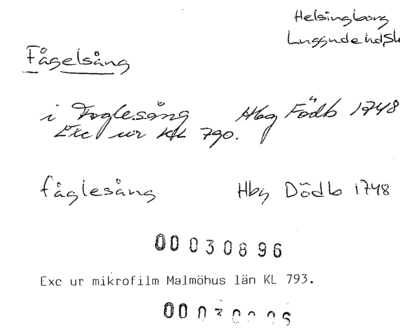 Helsingborg
Luggude hd, Sk
Fågelsång
i Foglesång Hbg Födb 1748
Exc ur KL 790.
fåglesång Hbg Dödb 1748
00030896
Exc ur mikrofilm Malmöhus län KL 793.